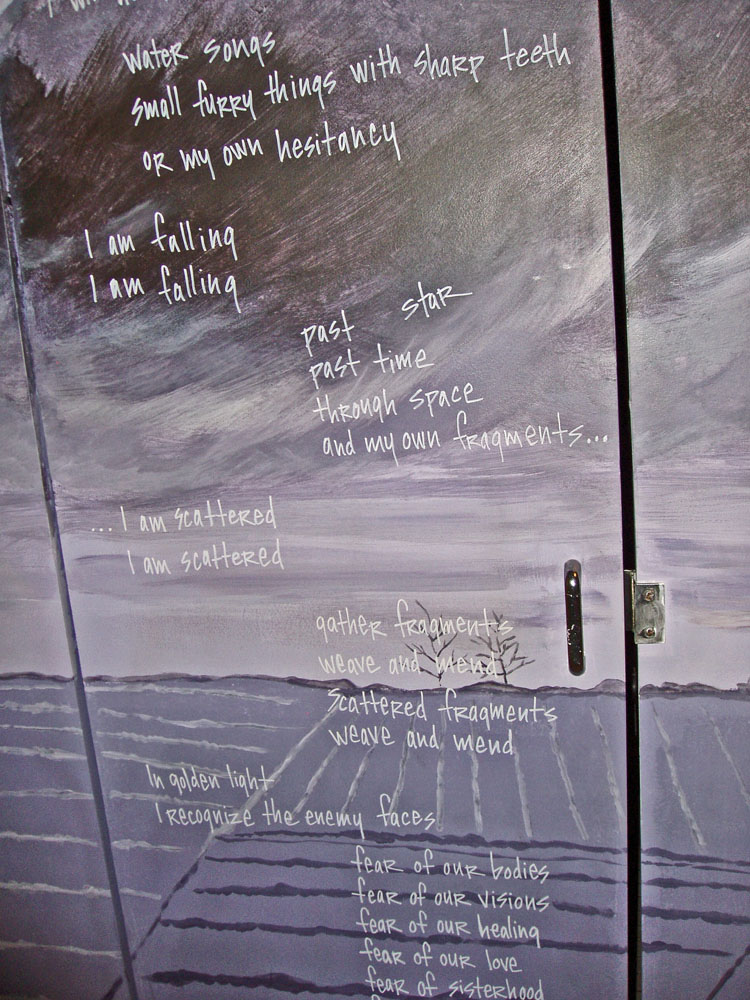 water songs
small furry things with sharp teeth
or my own hesitancy
I am falling
I am falling
past star
past time
through space
and my own fragments...
...I am scattered
I am scattered
gather fragments
weave and mend
Scattered fragments
weave and mend
In golden light
I recognize the enemy faces
fear of our bodies
fear of our visions
fear of our healing
fear of our love
fear of sisterhood